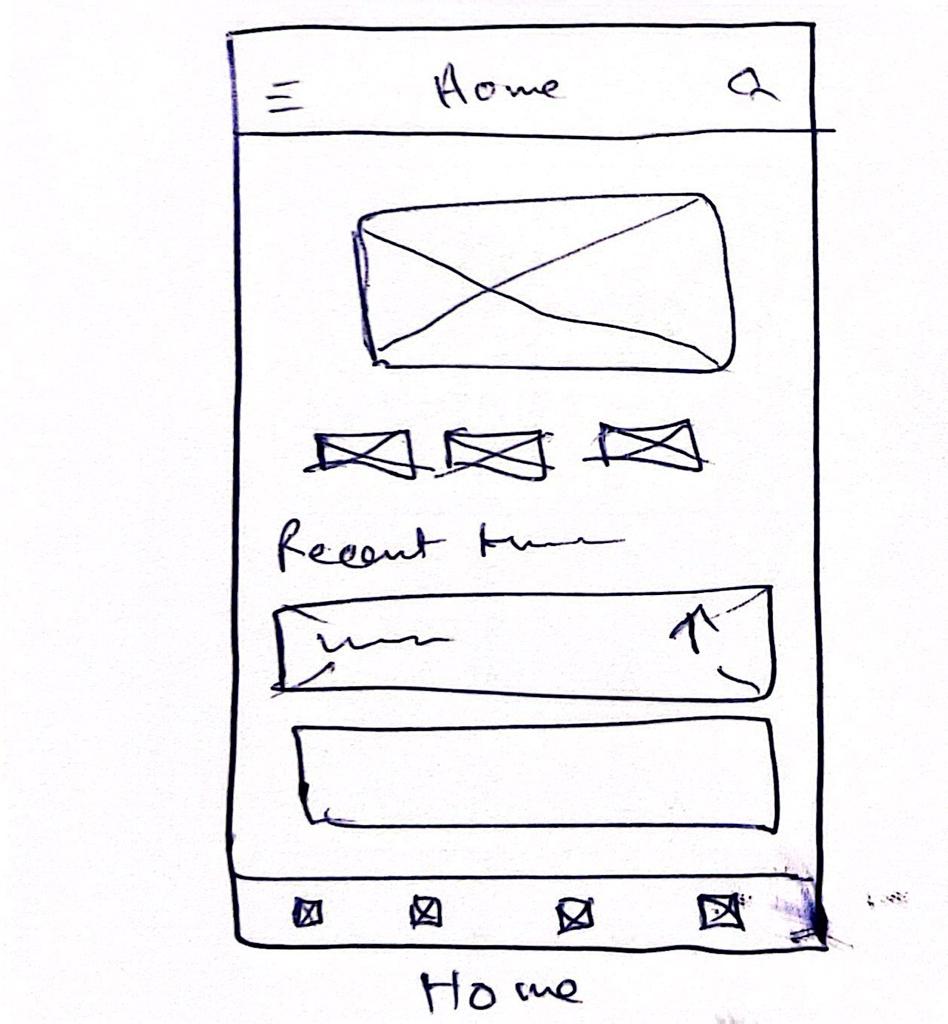 Home
Recent
Home